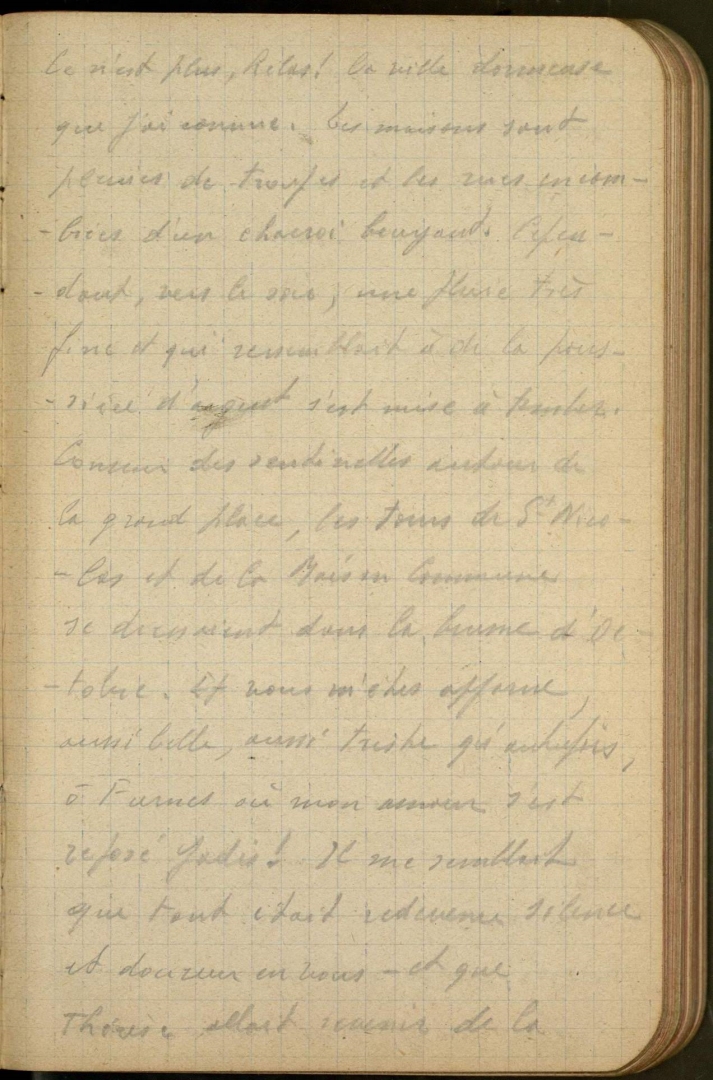 Ce n'est plus, hélas! la ville dormeuse
que j'ai connue. Les maisons sont
pleines de troupes et les rues encom-
-brées d'un charroi bruyant. Cepen-
-dant, vers le soir, une pluie très
fine et qui ressemblait à de la pous-
-sière d'argent s'est mise à tomber.
Comme des sentinelles autour de
la grand place, les tours de St Nico-
-las et de la Maison Commune
se dressaient dans la brume d'Oc
-tobre. Et vous m'êtes apparue,
aussi belle, aussi triste qu'autrefois,
ô Furnes où mon amour s'est
reposé jadis! Il me semblait
que tout était redevenu silence
et douceur en vous – et que
Thérèse allait revenir de la